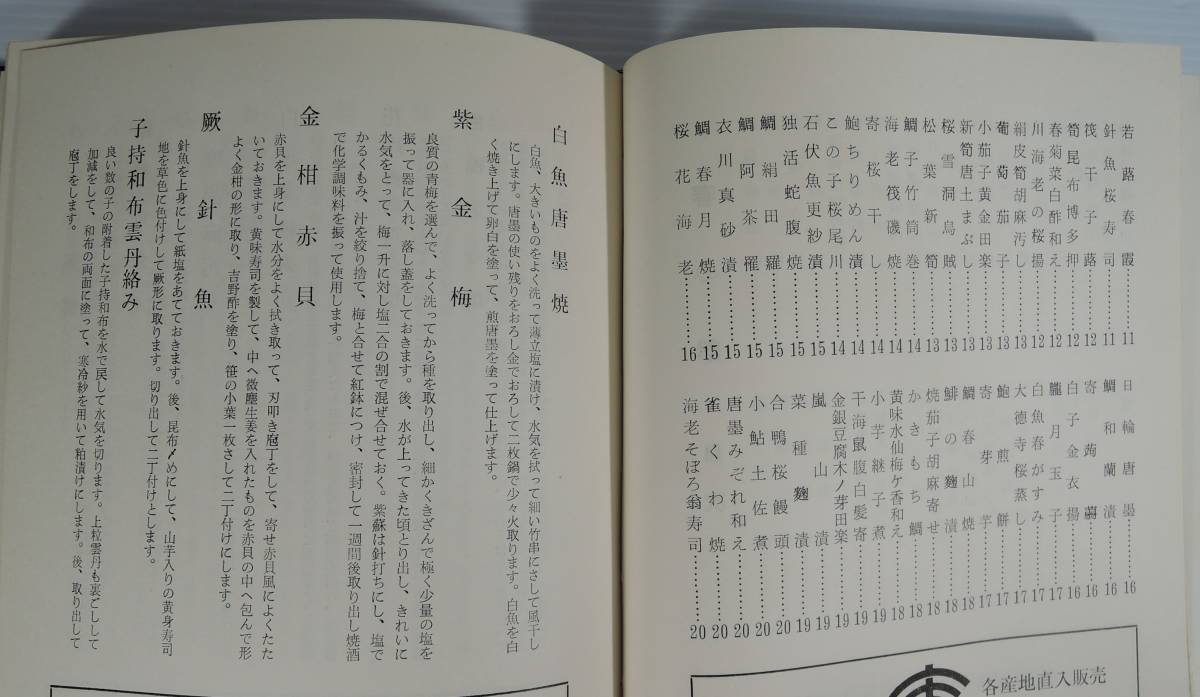 若蕗春霞……11
針魚桜寿司……11
筏干子蕗……12
筍昆布博多押……12
春菊菜白酢和え……12
川海老の桜揚……12
絹皮筍胡麻汚し……13
葡萄茄子……13
小茄子黄金田楽……13
新筍唐土まぶし……13
桜雪洞烏賊……13
松葉新筍……13
鯛子竹筒巻……14
海老筏磯焼……14
寄桜干し……14
鮑ちりめん漬……14
この子桜尾川……14
石伏魚更紗漬……15
独活蛇腹焼……15
鯛絹田羅……15
鯛阿茶漬
衣川真砂漬……15
鯛春月焼……15
桜花海老……16
日輪唐墨……16
鯛和蘭漬……16
寄蒟蒻……16
白子金衣揚……16
朧月玉子……17
白魚春がすみ……17
大徳寺桜蒸し……17
鮑煎餅……17
寄芽芋……17
鯛春山焼……18
鯡の麹漬……18
焼茄子胡麻寄せ……18
かきもち鯛……18
黄味水仙梅ケ香和え……18
小芋継子煮……19
干海鼠腹白髪寄……19
金銀豆腐木ノ芽田楽……19
嵐山漬……19
菜種麹漬……19
合鴨桜饅頭……20
小鮎土佐煮……20
唐墨みぞれ和え……20
雀くわ焼……20
海老そぼろ翁寿司……20
各産地直入販売
白魚唐墨焼
白魚、大きいものをよく洗って薄立塩に漬け、水気を拭って細い竹串にさして風干し
にします。唐墨の使い残りをおろし金でおろして二枚鍋で少々火取ります。白魚を白
く焼き上げて卵白を塗って、煎唐墨を塗って仕上げます。
紫金梅
良質の青梅を選んで、よく洗ってから種を取り出し、細かくきざんで極く少量の塩を
振って器に入れ、落し蓋をしておきます。後、水が上ってきた頃とり出し、きれいに
水気をとって、梅一升に対し塩二合の割で混ぜ合せておく。紫蘇は針打ちにし、塩で
かるくもみ、汁を絞り捨て、梅と合せて紅鉢につけ、密封して一週間後取り出し焼酒
で化学調味料を振って使用します。
金柑赤貝
赤貝を上身にして水分をよく拭き取って、刃叩き庖丁をして、寄せ赤貝風によくたた
いておきます。黄味寿司を製して、中へ微塵生姜を入れたものを赤貝の中へ包んで形
よく金柑の形に取り、吉野酢を塗り、笹の小葉一枚さして二丁付けにします。
厥針魚
針魚を上身にして紙塩をあてておきます。後、昆布〆めにして、山芋入りの黄身寿司
地を草色に色付けして厥形に取ります。切り出して二丁付けとします。
子持和布雲丹絡み
良い数の子の附着した子持和布を水で戻して水気を切ります。上粒雲丹も裏ごしして
加減をして、和布の両面に塗って、寒冷紗を用いて粕漬けにします。後、取り出して
庖丁をします。